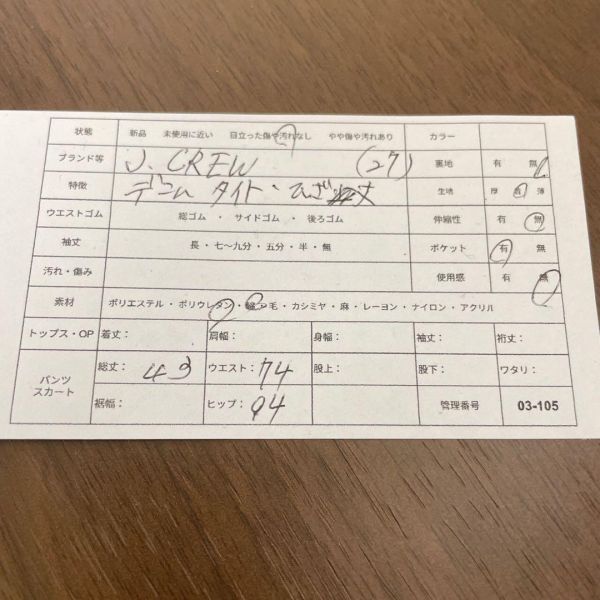 状態 新品 未使用に近い 目立った傷や汚れなし やや傷や汚れあり カラー
ブランド等 J. CREW (27) 裏地 有 無
特徴 デニム タイト・ひざ丈 生地 厚 普 薄
ウエストゴム 総ゴム ・ サイドゴム ・ 後ろゴム 伸縮性 有 無
袖丈 長・七〜九分・五分・半・無 ポケット 有 無
汚れ・傷み 使用感 有 無
素材 ポリエステル・ポリウレタン・綿・毛・カシミヤ・麻・レーヨン・ナイロン・アクリル
トップス・OP 着丈: 肩幅: 身幅: 袖丈: 裄丈:
パンツ スカート 総丈: 43 ウエスト: 74 股上: 股下: ワタリ:
裾幅: ヒップ: 94 管理番号 03-105